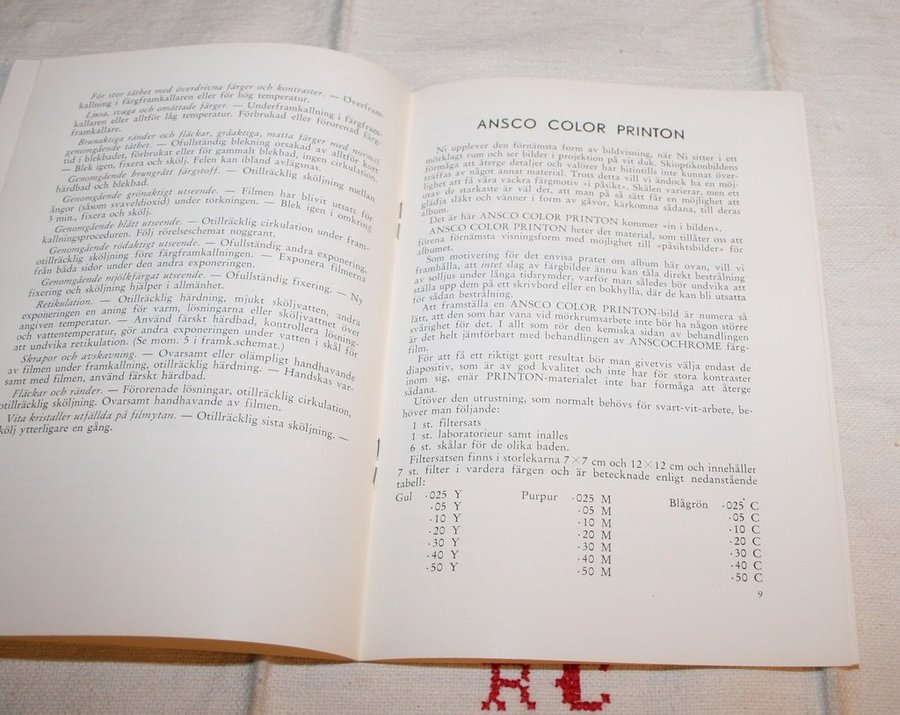 För stor täthet med överdrivna färger och kontraster. — Överfram-
kallning i färgframkallaren eller för hög temperatur.
Ljusa, svaga och omättade färger. — Underframkallning i färgfram-
kallaren eller alltför låg temperatur. Förbrukad eller förorenad färg-
framkallare.
Brunaktiga ränder och fläckar, gråaktiga, matta färger med normal
genomgående täthet. — Ofullständig blekning orsakad av alltför kort
tid i blekbadet, förbrukat eller för gammalt blekbad, ingen cirkulation.
— Blek igen, fixera och skölj. Felen kan ibland avlägsnas.
Genomgående brungrått färgstoff. — Otillräcklig sköljning mellan
härdbad och blekbad.
Genomgående grönaktigt utseende. — Filmen har blivit utsatt för
ångor (såsom svaveldioxid) under torkningen. — Blek igen i omkring
3 min., fixera och skölj.
Genomgående blått utseende. — Otillräcklig cirkulation under fram-
kallningsproceduren. Följ rörelseschemat noggrant.
Genomgående rödaktigt utseende. — Ofullständig andra exponering,
otillräcklig sköljning före färgframkallningen. — Exponera filmerna
från båda sidor under den andra exponeringen.
Genomgående mjölkfärgat utseende. — Ofullständig fixering. — Ny
fixering och sköljning hjälper i allmänhet.
Retikulation. — Otillräcklig härdning, mjukt sköljvatten, andra
exponeringen en aning för varm, lösningarna eller sköljvattnet över
angiven temperatur. — Använd färskt härdbad, kontrollera lösning-
och vattentemperatur, gör andra exponeringen under vatten i skål för
att undvika retikulation. (Se mom. 5 i framk.schemat.)
Skrapor och avskavning. — Ovarsamt eller olämpligt handhavande
av filmen under framkallning, otillräcklig härdning. — Handskas var-
samt med filmen, använd färskt härdbad.
Fläckar och ränder. — Förorenade lösningar, otillräcklig cirkulation,
otillräcklig sköljning. Ovarsamt handhavande av filmen.
Vita kristaller utfällda på filmytan. — Otillräcklig sista sköljning. —
kölj ytterligare en gång.
ANSCO COLOR PRINTON
Ni upplever den förnämsta form av bildvisning, när Ni sitter i ett
mörklagt rum och ser bilder i projektion på vit duk. Skioptikonbildens
förmåga att återge detaljer och valörer har hitintills inte kunnat över-
träffas av något annat material. Trots detta vill vi ändock ha en möj-
lighet att få våra vackra färgmotiv «i påsikt». Skälen varierar, men ett
utav de starkaste är väl det, att man på så sätt får en möjlighet att
glädja släkt och vänner i form av gåvor, kärkomna sådana, till deras
album.
Det är här ANSCO COLOR PRINTON kommer «in i bilden».
ANSCO COLOR PRINTON heter det material, som tillåter oss att
förena förnämsta visningsform med möjlighet till «påsiktsbilder» för
albumet.
Som motivering för det envisa pratet om album här ovan, vill vi
framhålla, att intet slag av färgbilder ännu kan tåla direkt bestrålning
av solljus under långa tidsrymder, varför man således bör undvika att
ställa upp dem på ett skrivbord eller en bokhylla, där de kan bli utsatta
för sådan bestrålning.
Att framställa en ANSCO COLOR PRINTON-bild är numera så
lätt, att den som har vana vid mörkrumsarbete inte bör ha någon större
svårighet för det. I allt som rör den kemiska sidan av behandlingen
är det helt jämförbart med behandlingen av ANSCOCHROME färg-
film.
För att få ett riktigt gott resultat bör man givetvis välja endast de
diapositiv, som är av god kvalitet och inte har för stora kontraster
inom sig, enär PRINTON-materialet inte har förmåga att återge
sådana.
Utöver den utrustning, som normalt behövs för svart-vit-arbete, be-
höver man följande:
1 st. filtersats
1 st. laboratorieur samt inalles
6 st. skålar för de olika baden.
Filtersatsen finns i storlekarna 7×7 cm och 12×12 cm och innehåller
7 st. filter i vardera färgen och är betecknade enligt nedanstående
tabell:
Gul ·025 Y Purpur ·025 M Blågrön ·025 C
·05 Y ·05 M ·05 C
·10 Y ·10 M ·10 C
·20 Y ·20 M ·20 C
·30 Y ·30 M ·30 C
·40 Y ·40 M ·40 C
·50 Y ·50 M ·50 C
9